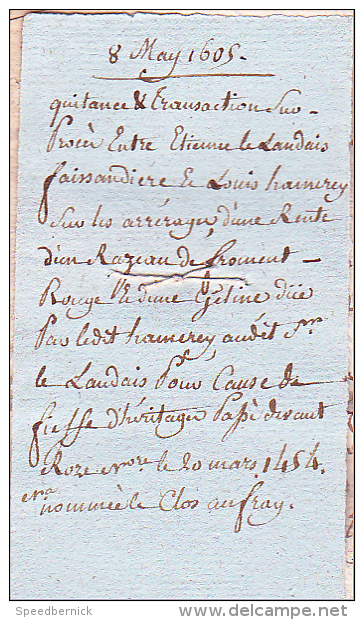 8 May 1605.
quitance & transaction Sur
Procès Entre Etienne le Landais
faissandiere & Louis hamerey
Sur les arrérages d'une Rente
d'un Razeau de froment
Rouge & d'une Geline düe
Par ledit hamerey audit Sr
le Landais Pour Cause de
fieffe d'héritages Passé devant
Roze le 20 mars 1454.
nommée le Clos aufray.
Speedbernick
delcampe.net